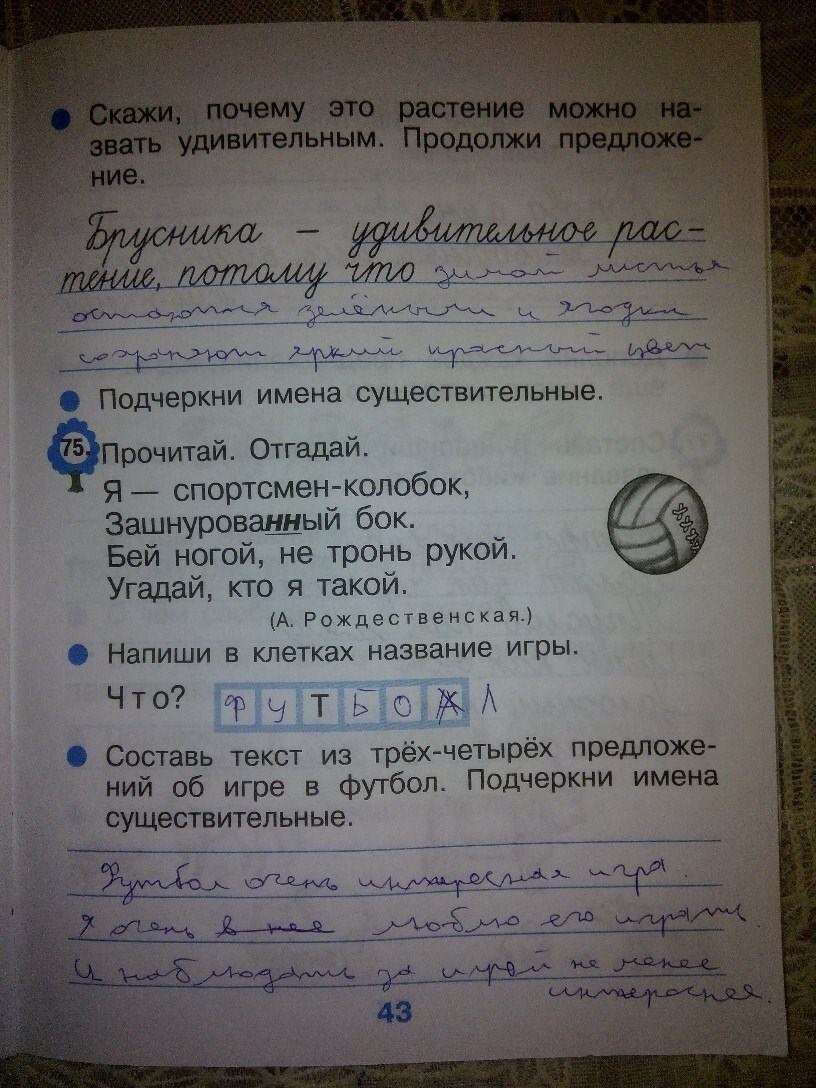 Скажи, почему это растение можно на-
звать удивительным. Продолжи предложе-
ние.
Брусника – удивительное рас-
тение, потому что зимой листья
остаются зелёными и ягодки
сохраняют яркий красный цвет
Подчеркни имена существительные.
75. Прочитай. Отгадай.
Я — спортсмен-колобок,
Зашнурованный бок.
Бей ногой, не тронь рукой.
Угадай, кто я такой.
(А. Рождественская.)
Напиши в клетках название игры.
Что? ФУТБОЛ
Составь текст из трёх-четырёх предложе-
ний об игре в футбол. Подчеркни имена
существительные.
Футбол очень интересная игра.
Я очень в нее люблю его играть.
И наблюдать за игрой не менее
интереснее.
43